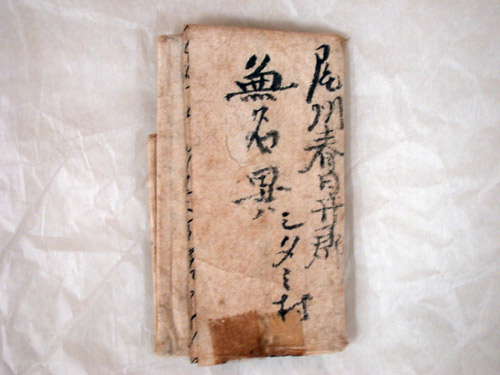 尾州春日井郡
シダミ村
無名異